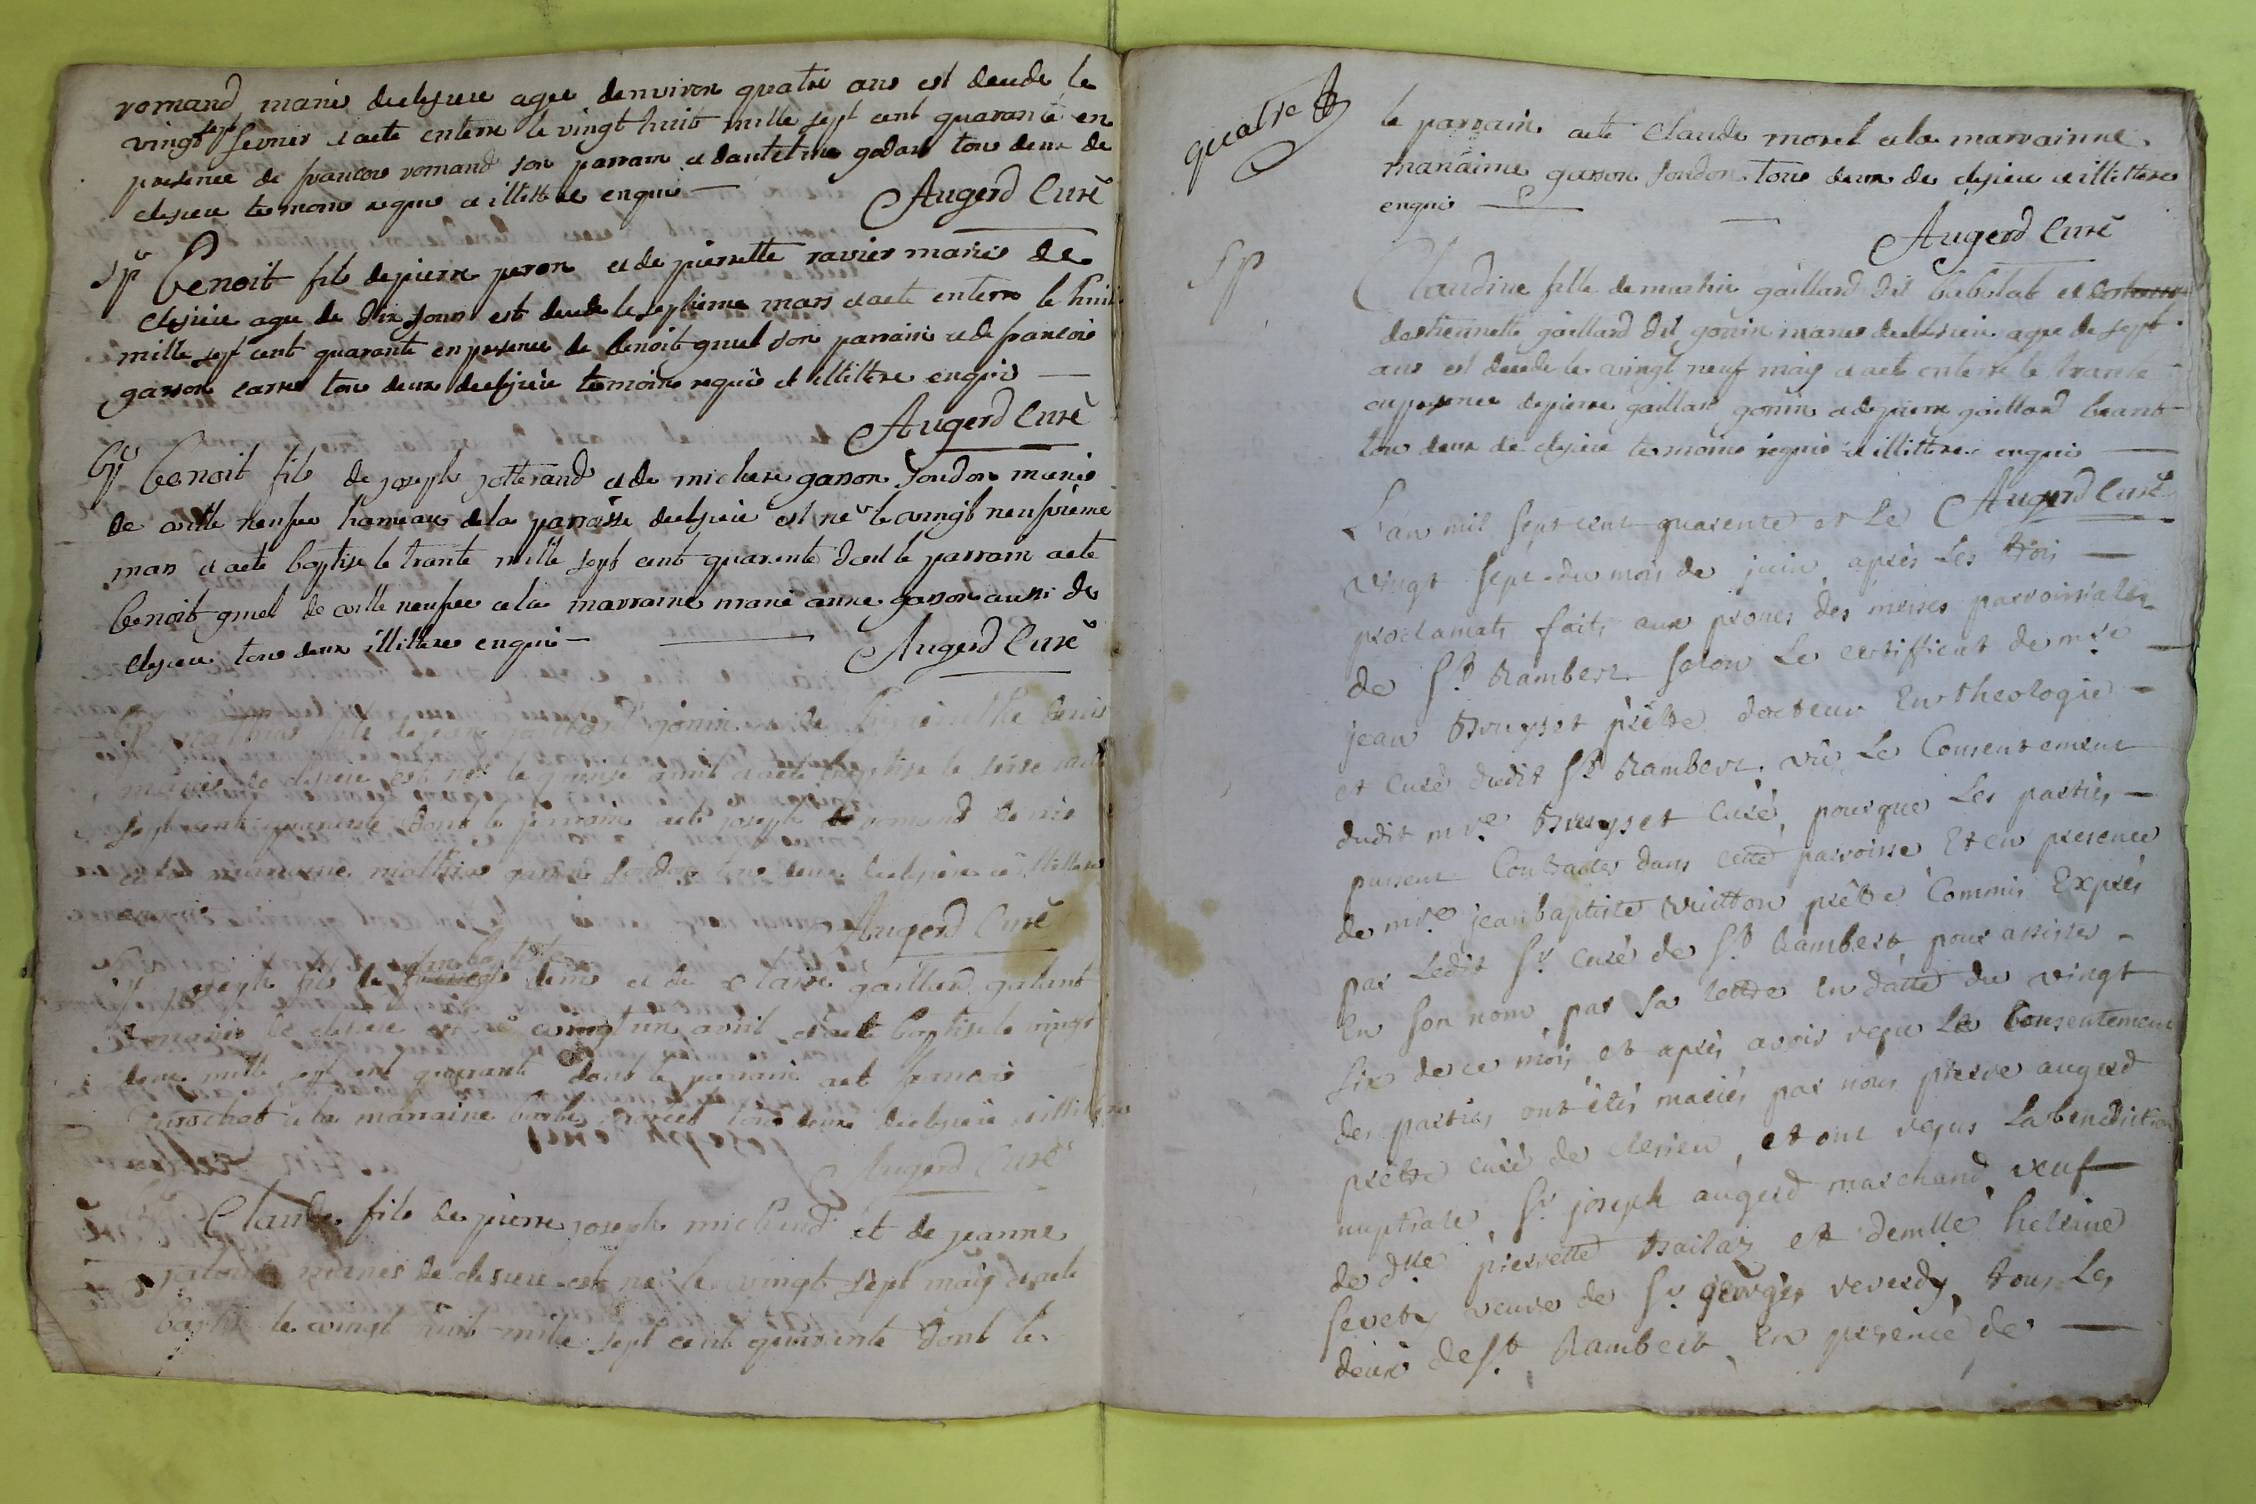 romand mariés declesieu agee denviron quatre ans est decede le
vingt sept fevrier et aete enterre le vingt huit mille sept cent quarante en
presence de francois romand son parrain et dantelme godar tous deux de
clesieu temoins requis et illittere enquis
Augerd Curé
Sp Benoit fils depierre peron et de pierrette ravier mariés de
clesieu agee de dix jours est decede le septieme mars et aete enterre le huit
mille sept cent quarante enpresence de benoit gruel son parrain et de francois
garson carre tous deux declesieu temoins requis et illittere enquis
Augerd Curé
Bp Benoit fils de joseph jotterand et de michere garson Joudon mariés
de ville neufve hameau dela parroisse declesieu est né le vingt neufvieme
mars et aete baptise le trante mille sept cent quarante dont le parrain aete
benoit gruel de ville neufve et la marraine marie anne garson aussi de
clesieu tous deux illittere enquis
Augerd Curé
mathieu fils de jean gaillard gonin et de
mariés de clesieu est né le quinse avril et aete baptise le seise mille
sept cent quarante dont le parrain aete joseph romand
et la marraine garson Joudon tous deux declesieu et illittere
Augerd Curé
joseph fils de jean baptiste et de claire gaillard galant
mariés de clesieu est né vingt un avril et aete baptise le vingt
deux mille sept cent quarante dont le parrain aete francois
et la marraine tous deux declesieu illittere
Augerd Curé
Claude fils de pierre joseph michaud et de jeanne
mariés de clesieu est né le vingt sept may et aete
baptisé le vingt huit mille sept cent quarante dont le
quatre
le parrain aete Claude morel et la marrainne
garson Joudon tous deux de clesieu et illittere
enquis
Augerd Curé
Sp Claudine fille de gaillard dit babolat et
destiennette gaillard dit gonin mariés declesieu agee de sept
ans est decede le vingt neuf may et aete enterre le trante
enpresence depierre gaillard gonin et depierre gaillard
tous deux de clesieu temoins requis et illittere enquis
Augerd Curé
L'an mil sept cent quarente et Le
vingt sept du mois de juin après Les trois
proclamats faits aux prones des messes parroissiales
de St Rambert Selon Le certifficat de mre
jean Bruyset prêtre docteur En theologie
et curé dudit St Rambert, vû Le Consentement
dudit mre Bruyset curé, pourque Les parties
puissent Contracter dans cette parroisse Et en presence
de mre jean baptiste Vuitton prêtre Commis Exprès
par Ledit Sr curé de St Rambert pour assister
En Son nom par Sa lettre En datte du vingt
Six de ce mois et après avoir reçu Le Consentement
des parties ont étés mariés par nous pierre augerd
prêtre curé de clesieu, et ont reçus La benediction
nuptiale Sr joseph augerd marchand veuf
de dlle pierrette Bailaz et demlle helaine
Sevety veuve de Sr georges reverdy, tous Les
deux de St Rambert En presence de